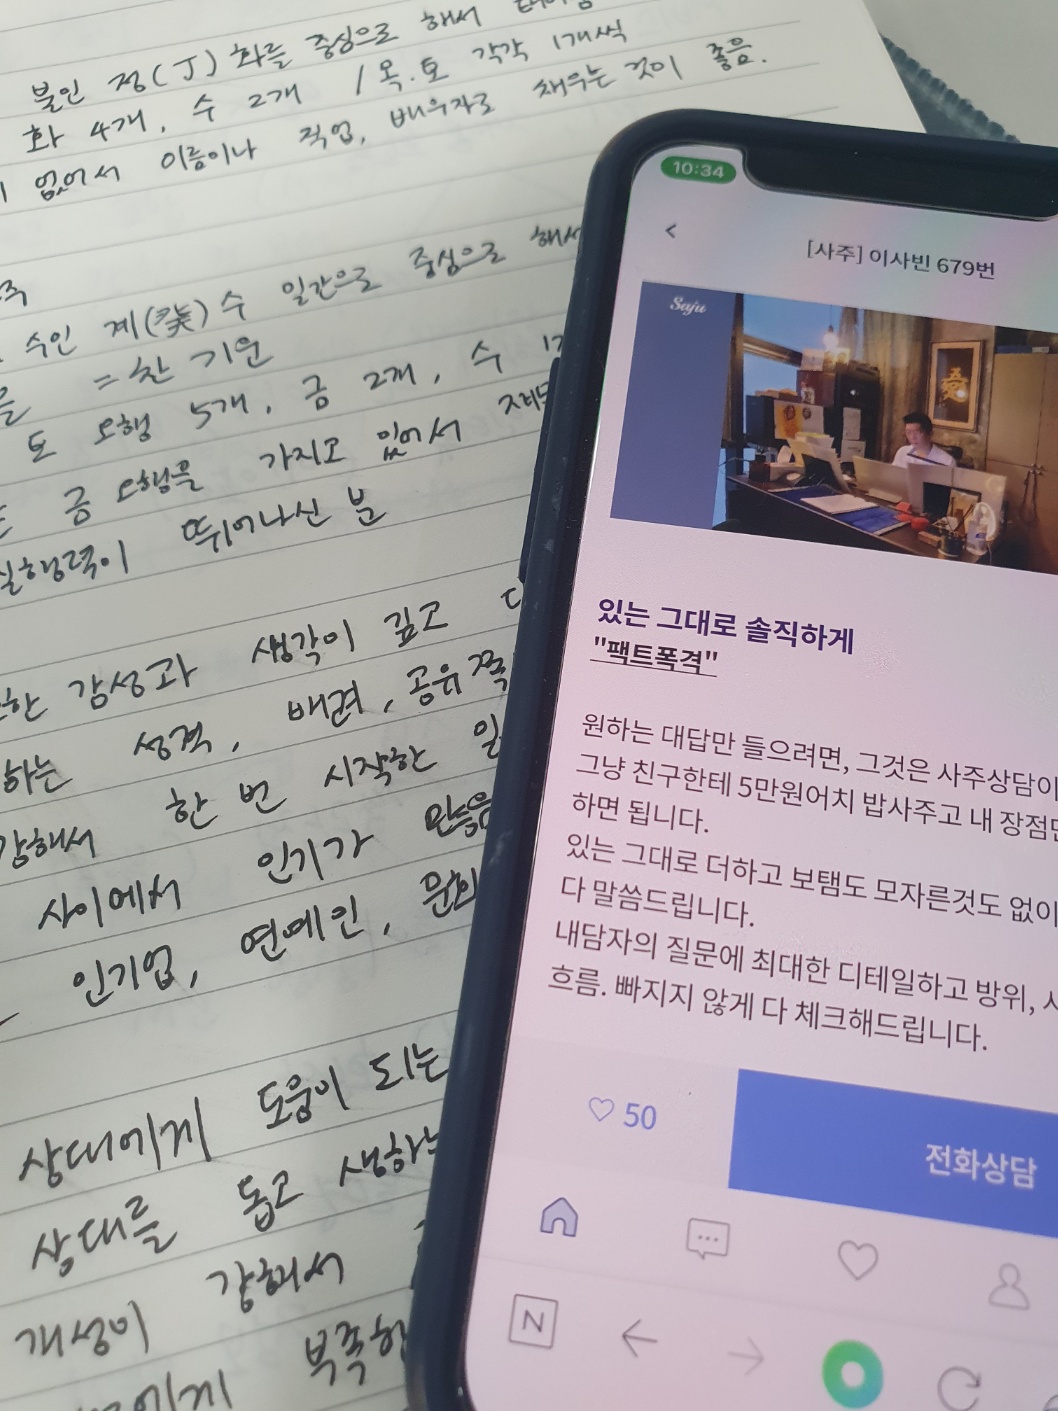 불인 정(丁) 화를 중심으로 해서
화 4개, 수 2개 / 목.토 각각 1개씩
없어서 이름이나 직업, 배우자로 채우는 것이 좋음.
수인 계(癸)수 일간으로 중심으로 해서
= 찬 기운
토 오행 5개, 금 2개, 수
금 오행을 가지고 있어서
실행력이 뛰어나신 분
감성과 생각이 깊고
하는 성격, 배려, 공유 쪽
강해서 한 번 시작한 일
사이에서 인기가 많음
인기업, 연예인, 문화
상대에게 도움이 되는
상대를 돕고 생하는
개성이 강해서
부족한
10:34
[사주] 이사빈 679번
Saju
있는 그대로 솔직하게
"팩트폭격"
원하는 대답만 들으려면, 그것은 사주상담이
그냥 친구한테 5만원어치 밥사주고 내 장점만
하면 됩니다.
있는 그대로 더하고 보탬도 모자른것도 없이
다 말씀드립니다.
내담자의 질문에 최대한 디테일하고 방위,
흐름. 빠지지 않게 다 체크해드립니다.
50
전화상담
N